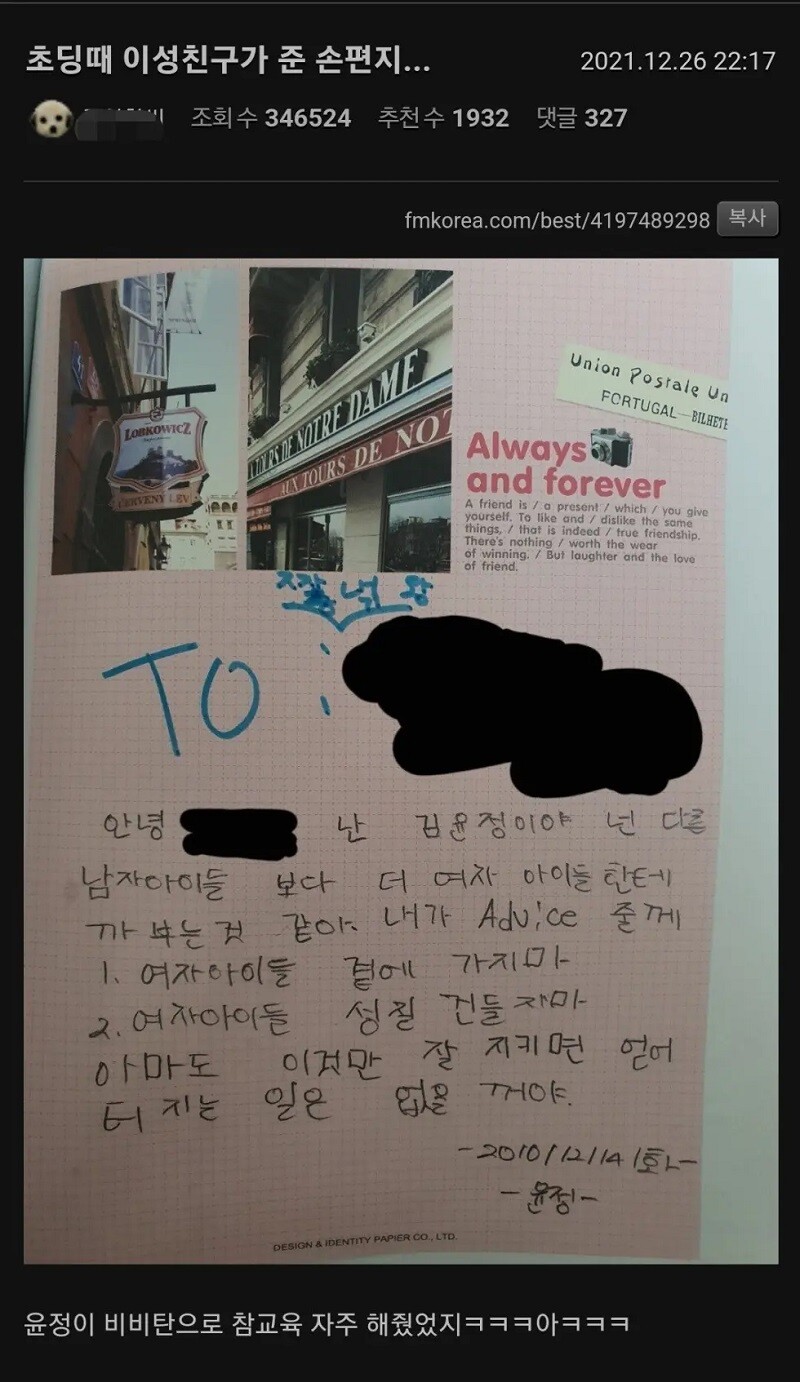 초딩때 이성친구가 준 손편지...
2021.12.26 22:17
조회수 346524 추천수 1932 댓글 327
fmkorea.com/best/4197489298 복사
LOBKOWICZ
CERVENY LEV
X TOURS DE NOTRE DAME
AUX TOURS DE NOT
Union Postale Un
PORTUGAL—BILHETE
Always
and forever
A friend is / a present / which / you give
yourself. To like and / dislike the same
things, / that is indeed / true friendship.
There's nothing / worth the wear
of winning. / But laughter and the love
of friend.
짱
TO :
안녕 난 김윤정이야 넌 다른
남자아이들 보다 더 여자 아이들한테
까 부는것 같아. 내가 Advice 줄께
1. 여자아이들 곁에 가지마
2. 여자아이들 성질 건들지마
아마도 이것만 잘 지키면 얻어
터 지는 일은 없을 꺼야.
-2010/12/14/화-
-윤정-
DESIGN & IDENTITY PAPIER CO., LTD.
윤정이 비비탄으로 참교육 자주 해줬었지ㅋㅋㅋ아ㅋㅋㅋ